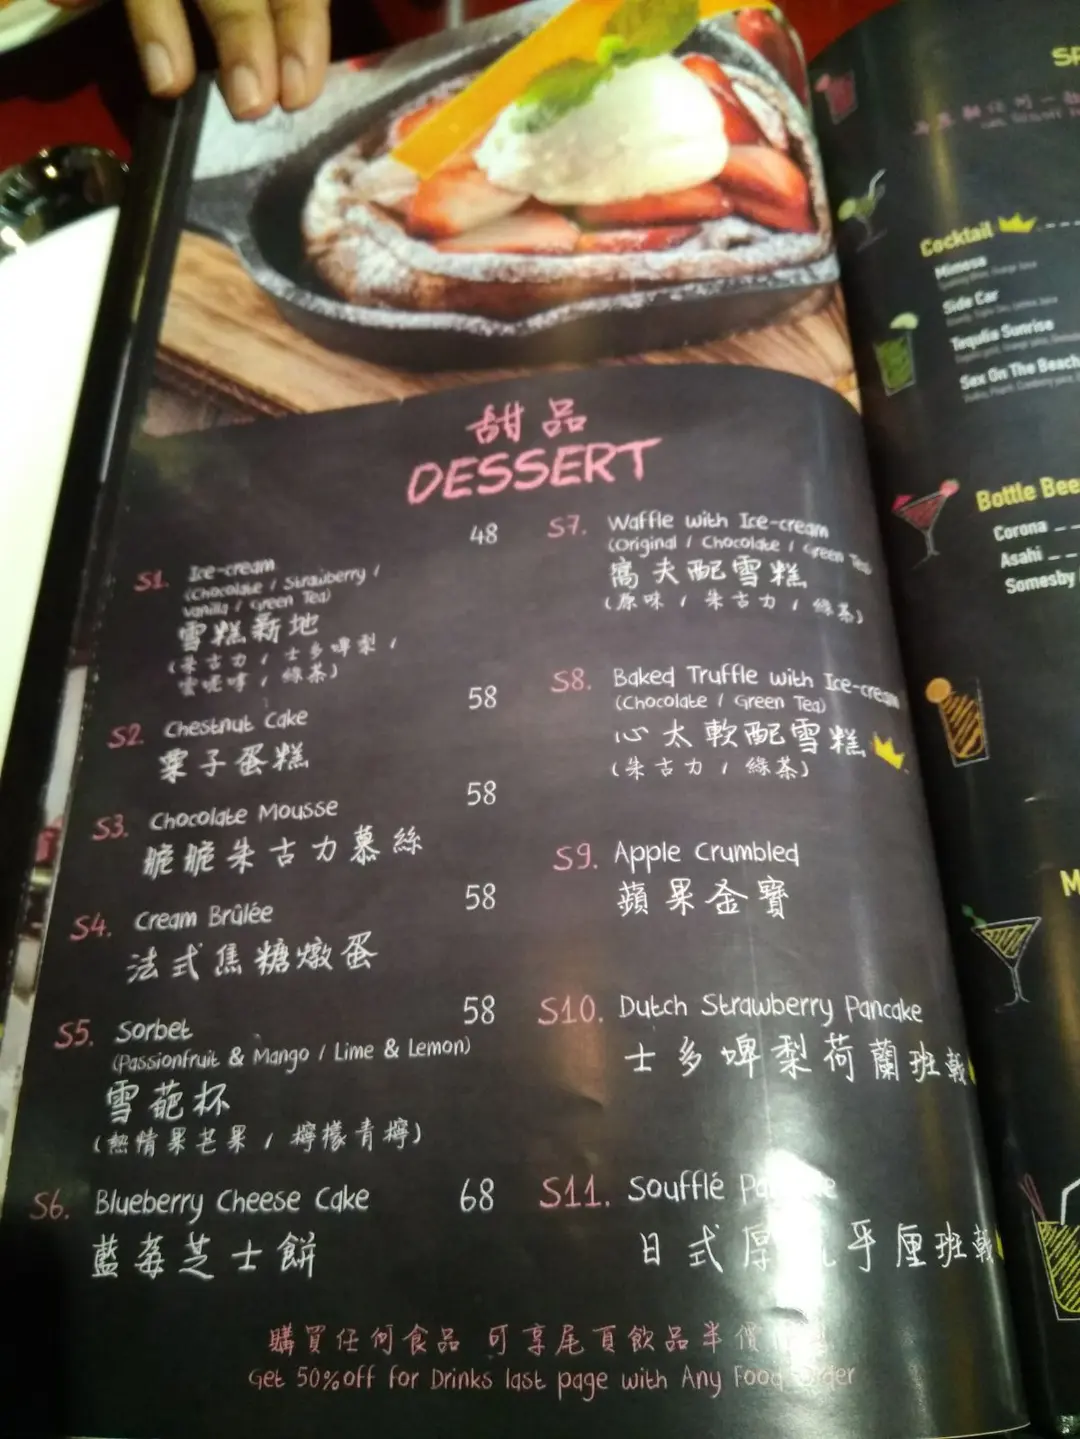 甜品
DESSERT
S1. Ice-cream 48
(Chocolate / Strawberry /
Vanilla / Green Tea)
雪糕新地
(朱古力 / 士多啤梨 /
雲呢嗱 / 綠茶)
S2. Chestnut Cake 58
栗子蛋糕
S3. Chocolate Mousse 58
脆脆朱古力慕絲
S4. Cream Brûlée 58
法式焦糖燉蛋
S5. Sorbet 58
(Passionfruit & Mango / Lime & Lemon)
雪葩杯
(熱情果芒果 / 檸檬青檸)
S6. Blueberry Cheese Cake 68
藍莓芝士餅
S7. Waffle with Ice-cream
(Original / Chocolate / Green Tea)
窩夫配雪糕
(原味 / 朱古力 / 綠茶)
S8. Baked Truffle with Ice-cream
(Chocolate / Green Tea)
心太軟配雪糕
(朱古力 / 綠茶)
S9. Apple Crumbled
蘋果金寶
S10. Dutch Strawberry Pancake
士多啤梨荷蘭班戟
S11. Soufflé
日式厚 乎厘班戟
購買任何食品 可享尾頁飲品半價
Get 50% off for Drinks last page with Any Food Order
Cocktail
Mimosa
Side Car
Tequila Sunrise
Sex On The Beach
Bottle Bee
Corona
Asahi
Somesby